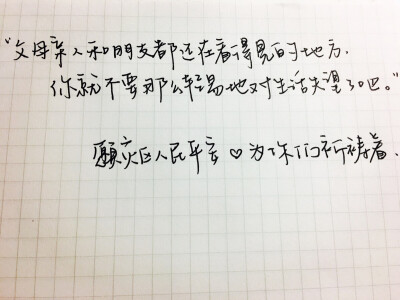 “父母亲人和朋友都还在看得見的地方.
你就不要那么轻易地对生活失望了吧。”
願灾区人民平安♡为你们祈祷着.